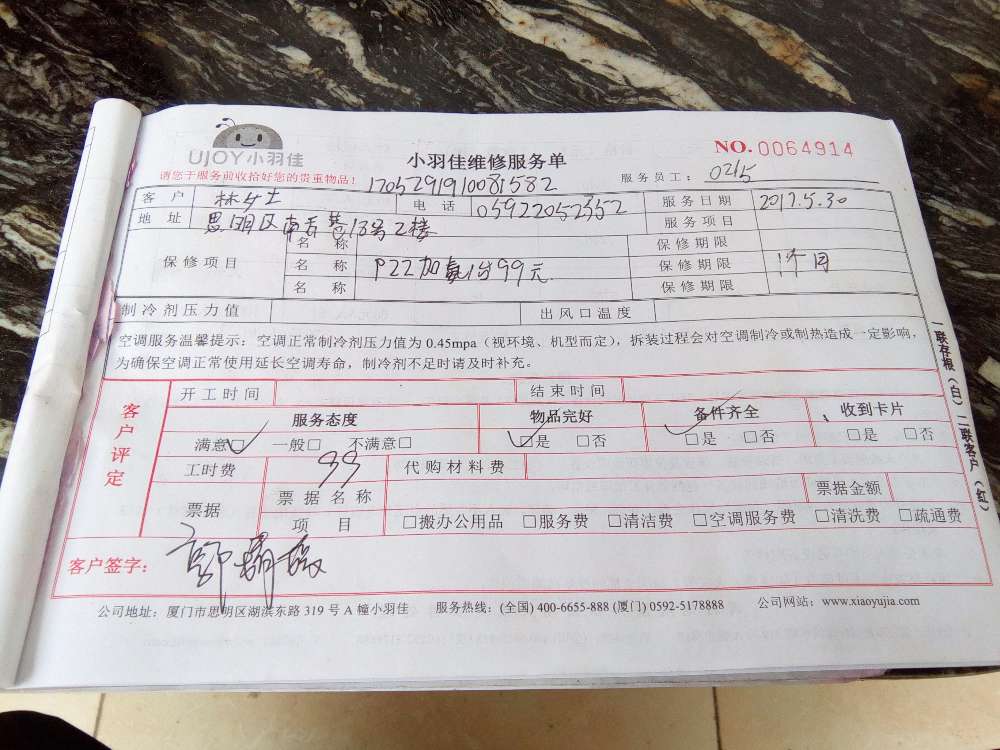 UJOY小羽佳
小羽佳维修服务单
NO.0064914
请您于服务前收拾好您的贵重物品!
1705291910081582
服务员工: 0215
客户 林女士 电话 05922052352 服务日期 2017.5.30
地址 思明区 13号2楼 服务项目
保修项目
名称 保修期限
名称 P22加氟1台99元 保修期限 1个月
名称 保修期限
制冷剂压力值 出风口温度
空调服务温馨提示:空调正常制冷剂压力值为 0.45mpa(视环境、机型而定),拆装过程会对空调制冷或制热造成一定影响,
为确保空调正常使用延长空调寿命,制冷剂不足时请及时补充。
客户评定
开工时间 结束时间
服务态度 物品完好 备件齐全 收到卡片
满意☑ 一般□ 不满意□ ☑是 □否 ☑是 □否 □是 □否
工时费 99 代购材料费
票据 票据名称 票据金额
项目 □搬办公用品 □服务费 □清洁费 □空调服务费 □清洗费 □疏通费
客户签字:
公司地址:厦门市思明区湖滨东路 319 号 A 幢小羽佳 服务热线:(全国) 400-6655-888 (厦门) 0592-5178888 公司网站:www.xiaoyujia.com
一联存根(白) 二联客户(红)